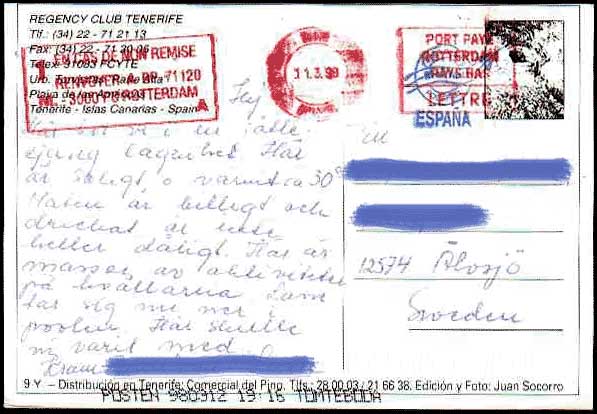 REGENCY CLUB TENERIFE
Tlf.: (34) 22 - 71 21 13
Fax: (34) 22 - 71
Telex
Urb.
Playa de
Tenerife - Islas Canarias - Spain
EN CAS DE NON REMISE
RENVOYER A BP 71120
NL - 3000 ROTTERDAM
A
11.3.98
PORT PAYE
ROTTERDAM
PAYS BAS
LETTRE
ESPAÑA
Hej
i en jätte
läget. Här
är soligt, o varmt ca 30°
Maten är billigt och
drickat är inte
heller dåligt. Här är
massor av aktiviteter
på kvällarna. Sam
lar sig mer i
poolen. Här skulle
ni varit med.
Kram
12574 Älvsjö
Sweden
9 Y – Distribución en Tenerife: Comercial del Pino. Tlfs.: 28 00 03 / 21 66 38. Edición y Foto: Juan Socorro
POSTEN 980312 19:16 TOMTEBODA